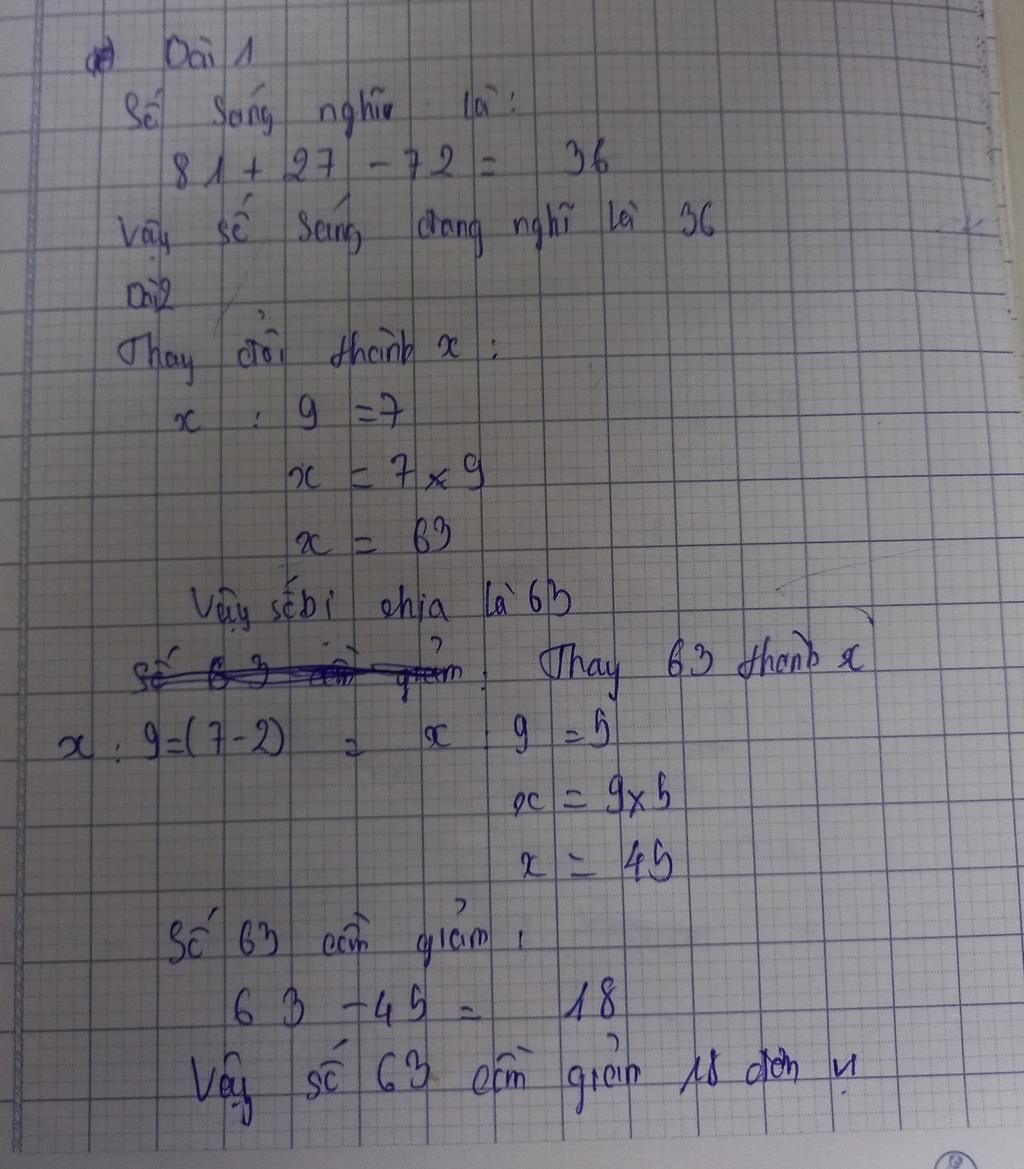 a) Bài 1
Số Sáng nghĩ là:
81 + 27 - 72 = 36
Vậy số Sáng đang nghĩ là 36
Bài 2
Thay đổi thành x :
x : 9 = 7
x = 7 x 9
x = 63
Vậy số bị chia là 63
Số 63 cần giảm: Thay 63 thành x
x : 9 = (7 - 2) = x : 9 = 5
x = 9 x 5
x = 45
Số 63 cần giảm :
63 - 45 = 18
Vậy số 63 cần giảm 18 đơn vị